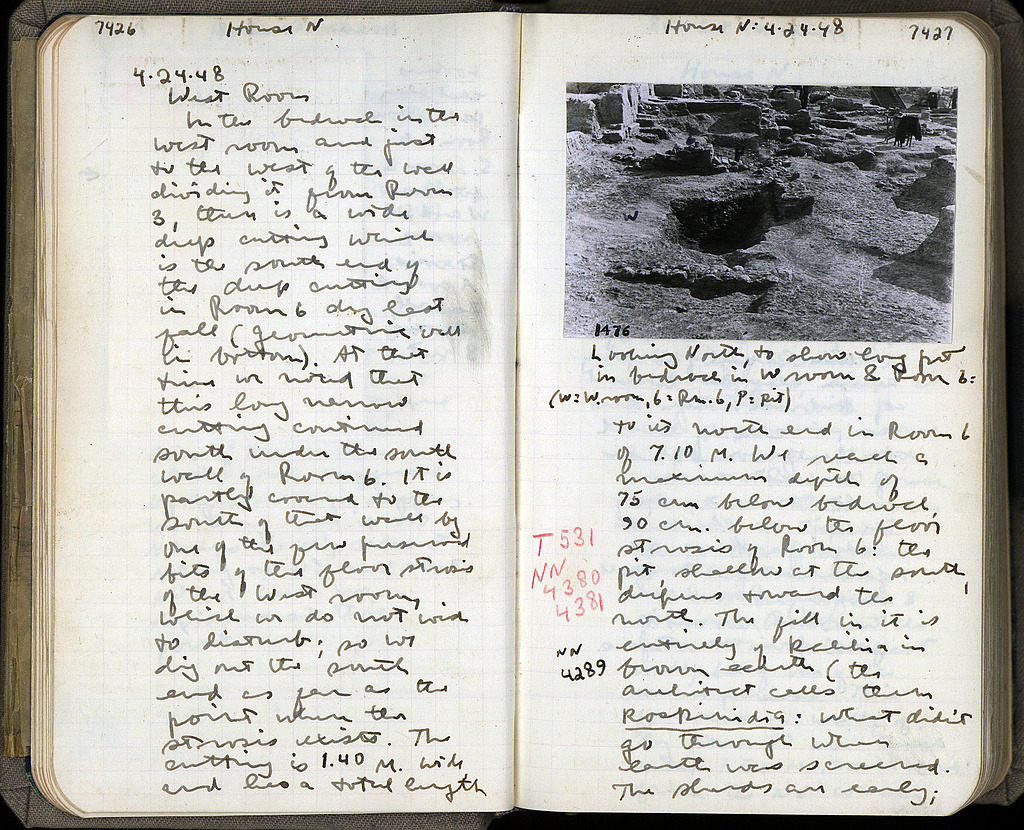 7426 House N
4.24.48
West Room
In the bedrock in the
west room and just
to the west of the wall
dividing it from Room
3, there is a wide
deep cutting which
is the south end of
the deep cutting
in Room 6 dug last
fall (geometric well
in bottom). At that
time we noted that
this long narrow
cutting continued
south under the south
wall of Room 6. It is
partly covered to the
south of that wall by
one of the few preserved
bits of the floor strosis
of the West room,
which we do not wish
to disturb; so we
dig out the south
end as far as the
point where the
strosis exists. The
cutting is 1.40 M. wide
and has a total length
House N: 4.24.48 7427
W
1476
Looking North, to show long pit
in bedrock in W room & Room 6:
(W=W.room, 6=Rm.6, P=pit)
to its north end in Room 6
of 7.10 M. We reach a
maximum depth of
75 cm below bedrock,
90 cm. below the floor
strosis of Room 6: the
pit, shallow at the south,
deepens toward the
north. The fill in it is
entirely of in
brown earth (the
architect calls them
: what didn't
go through when
earth was screened.
The sherds are early;
T 531
NN
4380
4381
NN
4289